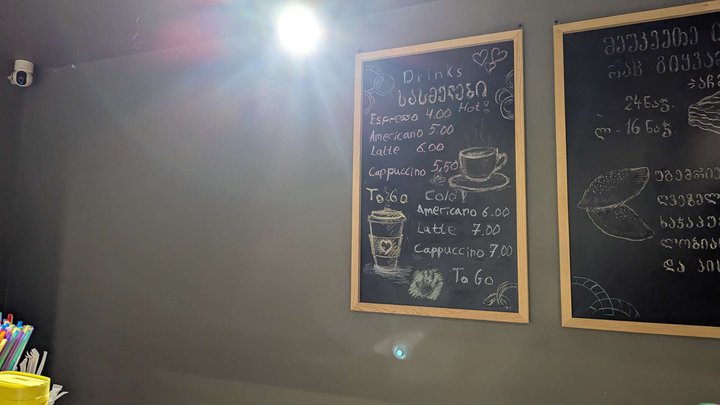 Drinks
სასმელები
Hot!
Espresso 4.00
Americano 5.00
Latte 6.00
Cappuccino 5,50
To Go
Cold!
Americano 6.00
Latte 7.00
Cappuccino 7,00
To Go
შეუკვერე
რაც
- 24 ნაჭ.
ლ - 16 ნაჭ.
და